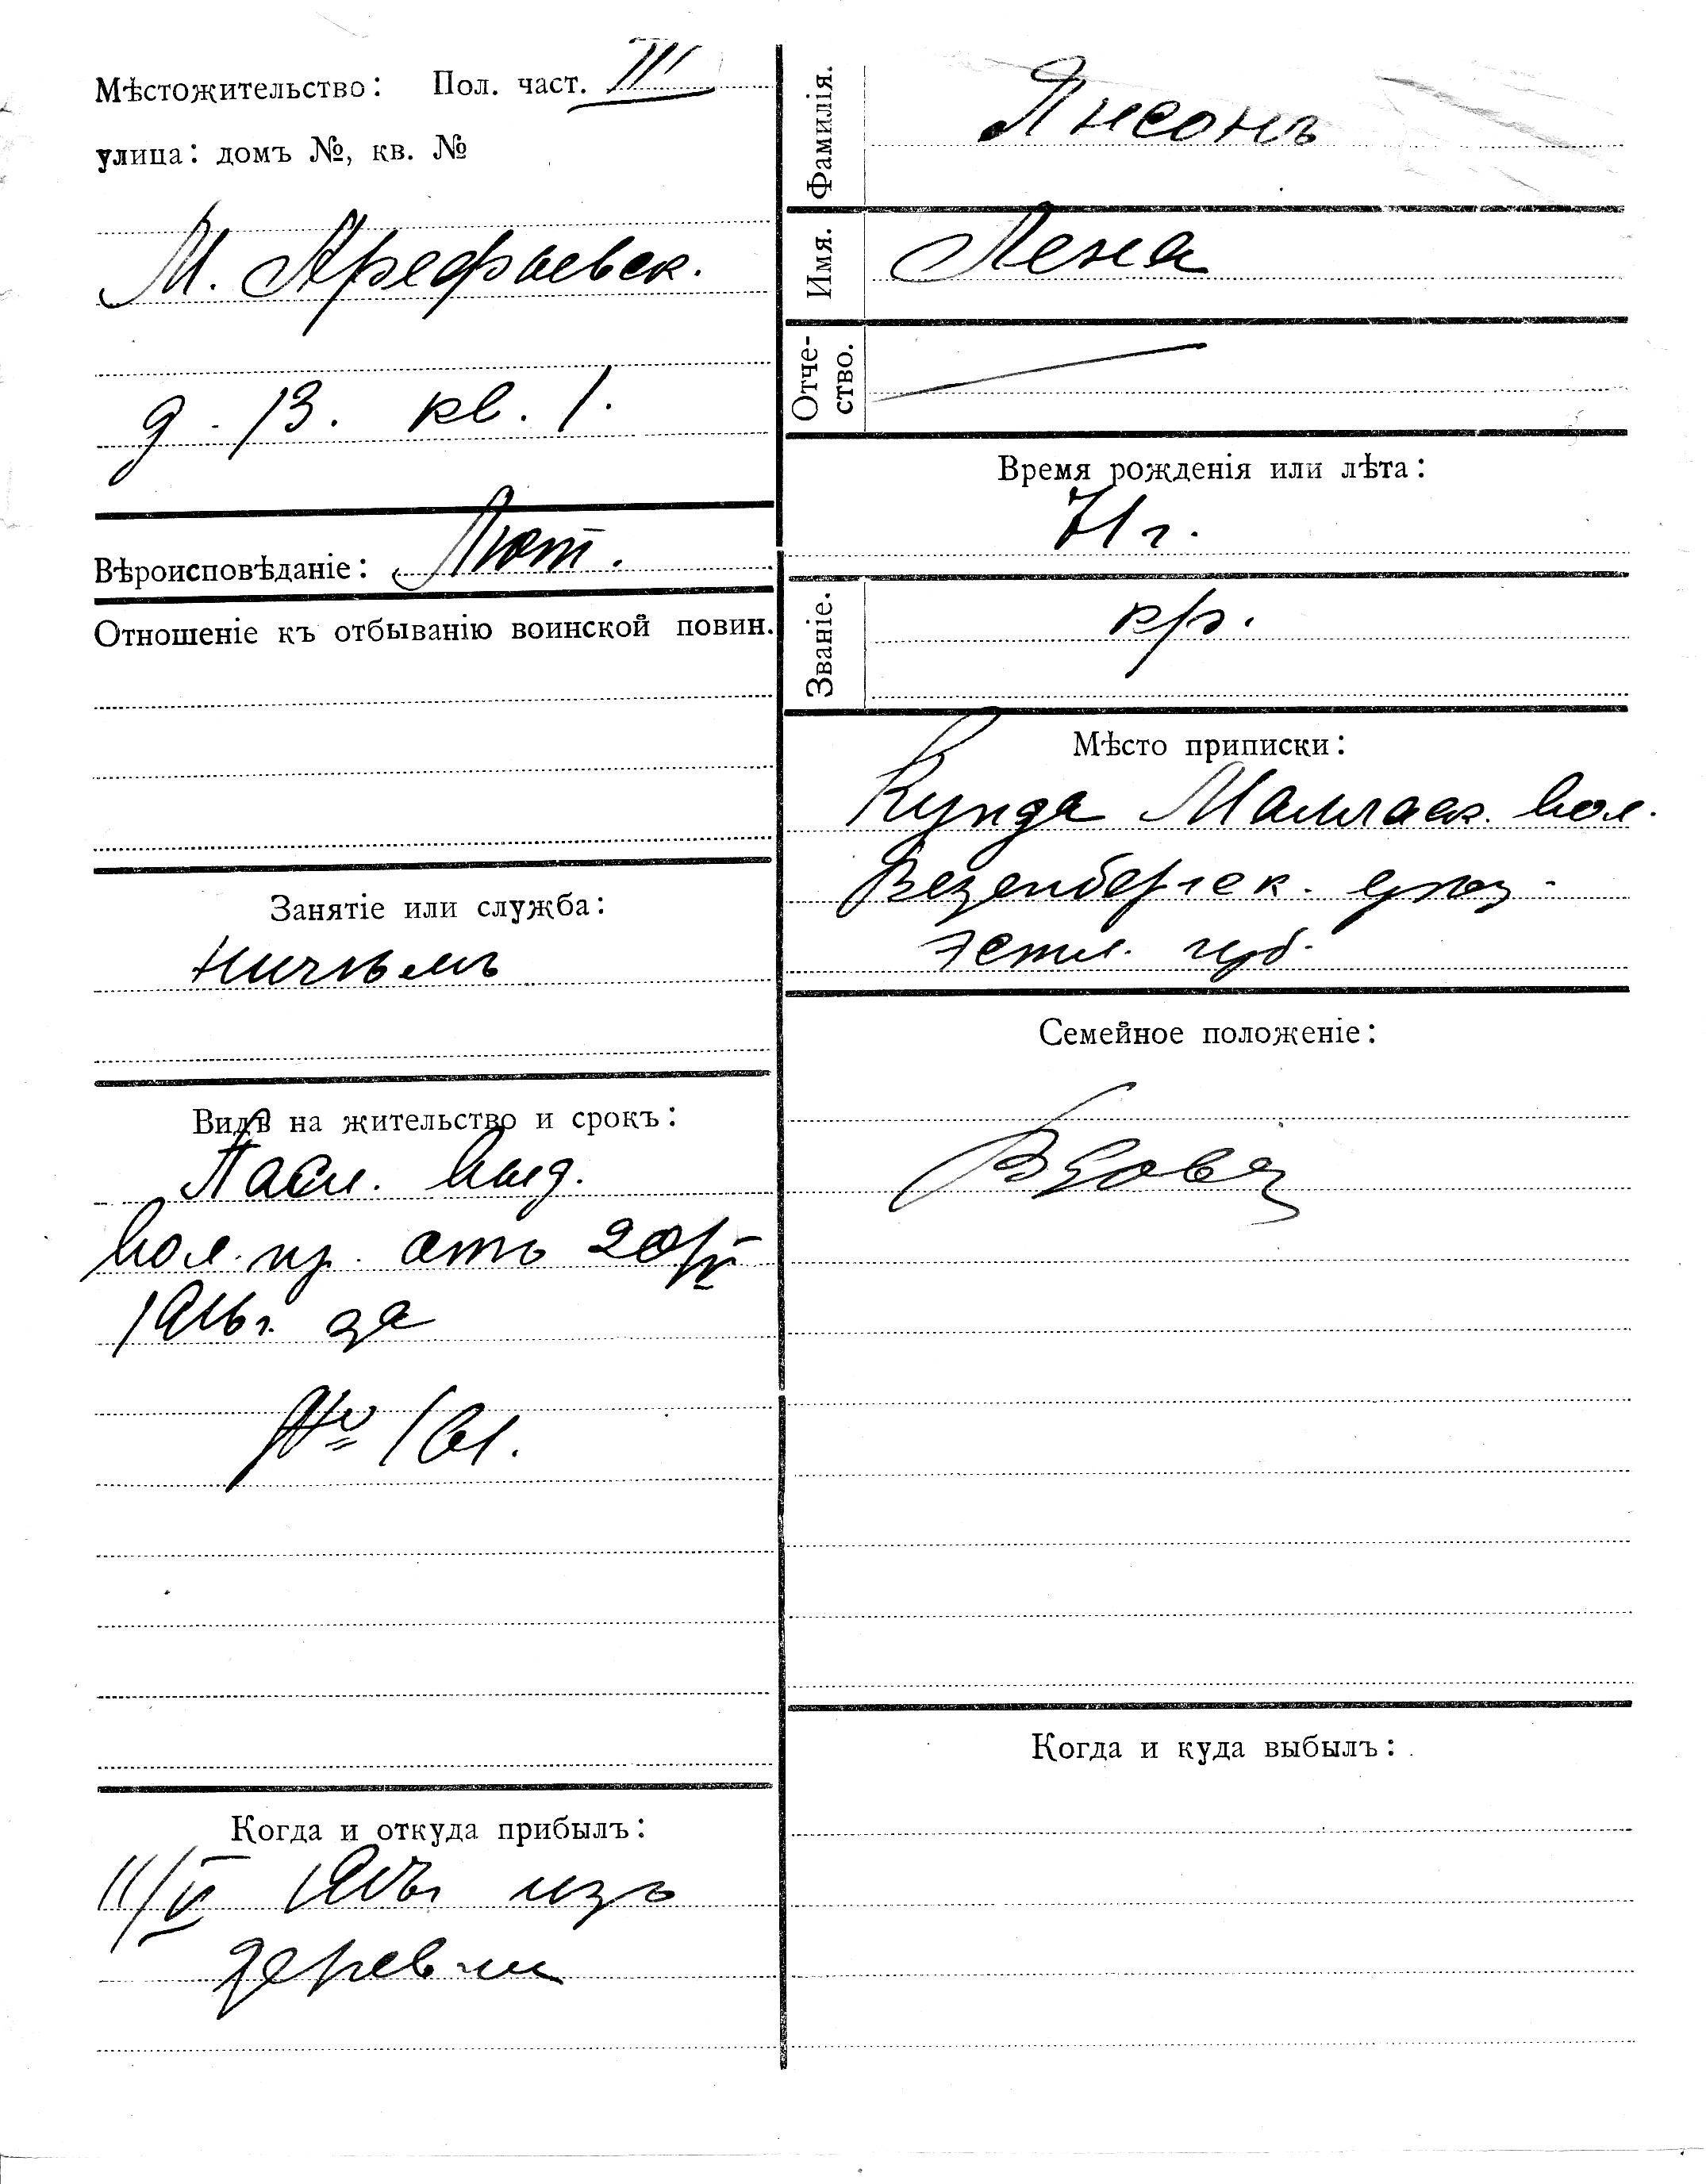 Мѣстожительство: Пол. част. III
улица: домъ №, кв. №
М. Арефьевск.
д. 13. кв. 1.
Вѣроисповѣданіе: Лют.
Отношеніе къ отбыванію воинской повин.
Занятіе или служба:
ничѣмъ
Видъ на жительство и срокъ:
Пасп. выд.
вол. пр. отъ 20/IV
1916 г. за
№ 161.
Когда и откуда прибылъ:
11/V 1916 г. изъ
деревни
Фамилія. Янсонъ
Имя. Лена
Отче-
ство.
Время рожденія или лѣта:
71 г.
Званіе. кр.
Мѣсто приписки:
Кунда Малласк. вол.
Везенбергск. уѣзд.
Эстл. губ.
Семейное положеніе:
Вдова
Когда и куда выбылъ: